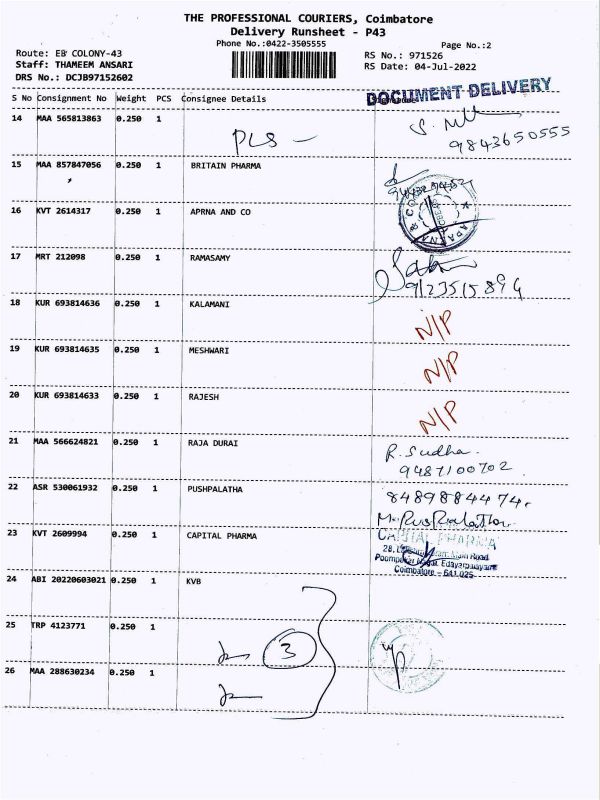 THE PROFESSIONAL COURIERS, Coimbatore
Delivery Runsheet - P43
Phone No.:0422-3505555
Page No.:2
Route: EB COLONY-43
RS No.: 971526
Staff: THAMEEM ANSARI
RS Date: 04-Jul-2022
DRS No.: DCJB97152602
S No Consignment No Weight PCS Consignee Details
DOCUMENT DELIVERY
14 MAA 565813863 0.250 1
PLS
9843650555
15 MAA 857847056 0.250 1 BRITAIN PHARMA
16 KVT 2614317 0.250 1 APRNA AND CO
17 MRT 212098 0.250 1 RAMASAMY
18 KUR 693814636 0.250 1 KALAMANI N/P
19 KUR 693814635 0.250 1 MESHWARI N/P
20 KUR 693814633 0.250 1 RAJESH N/P
21 MAA 566624821 0.250 1 RAJA DURAI R. Sudha.
9487100702
22 ASR 530061932 0.250 1 PUSHPALATHA 8489884474
23 KVT 2609994 0.250 1 CAPITAL PHARMA CAPITAL PHARMA
Main Road
Edayarpalayam
Coimbatore - 641 025
24 ABI 20220603021 0.250 1 KVB
25 TRP 4123771 0.250 1
3
26 MAA 288630234 0.250 1